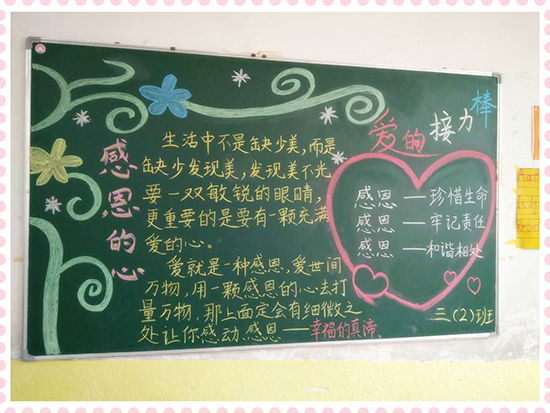 感恩的心
生活中不是缺少美,而是
缺少发现美,发现美不光
要一双敏锐的眼睛,
更重要的是要有一颗充满
爱的心。
爱就是一种感恩,爱世间
万物,用一颗感恩的心去打
量万物,那上面定会有细微之
处让你感动感恩——幸福的真谛。
爱的接力棒
感恩——珍惜生命
感恩——牢记责任
感恩——和谐相处
三(2)班